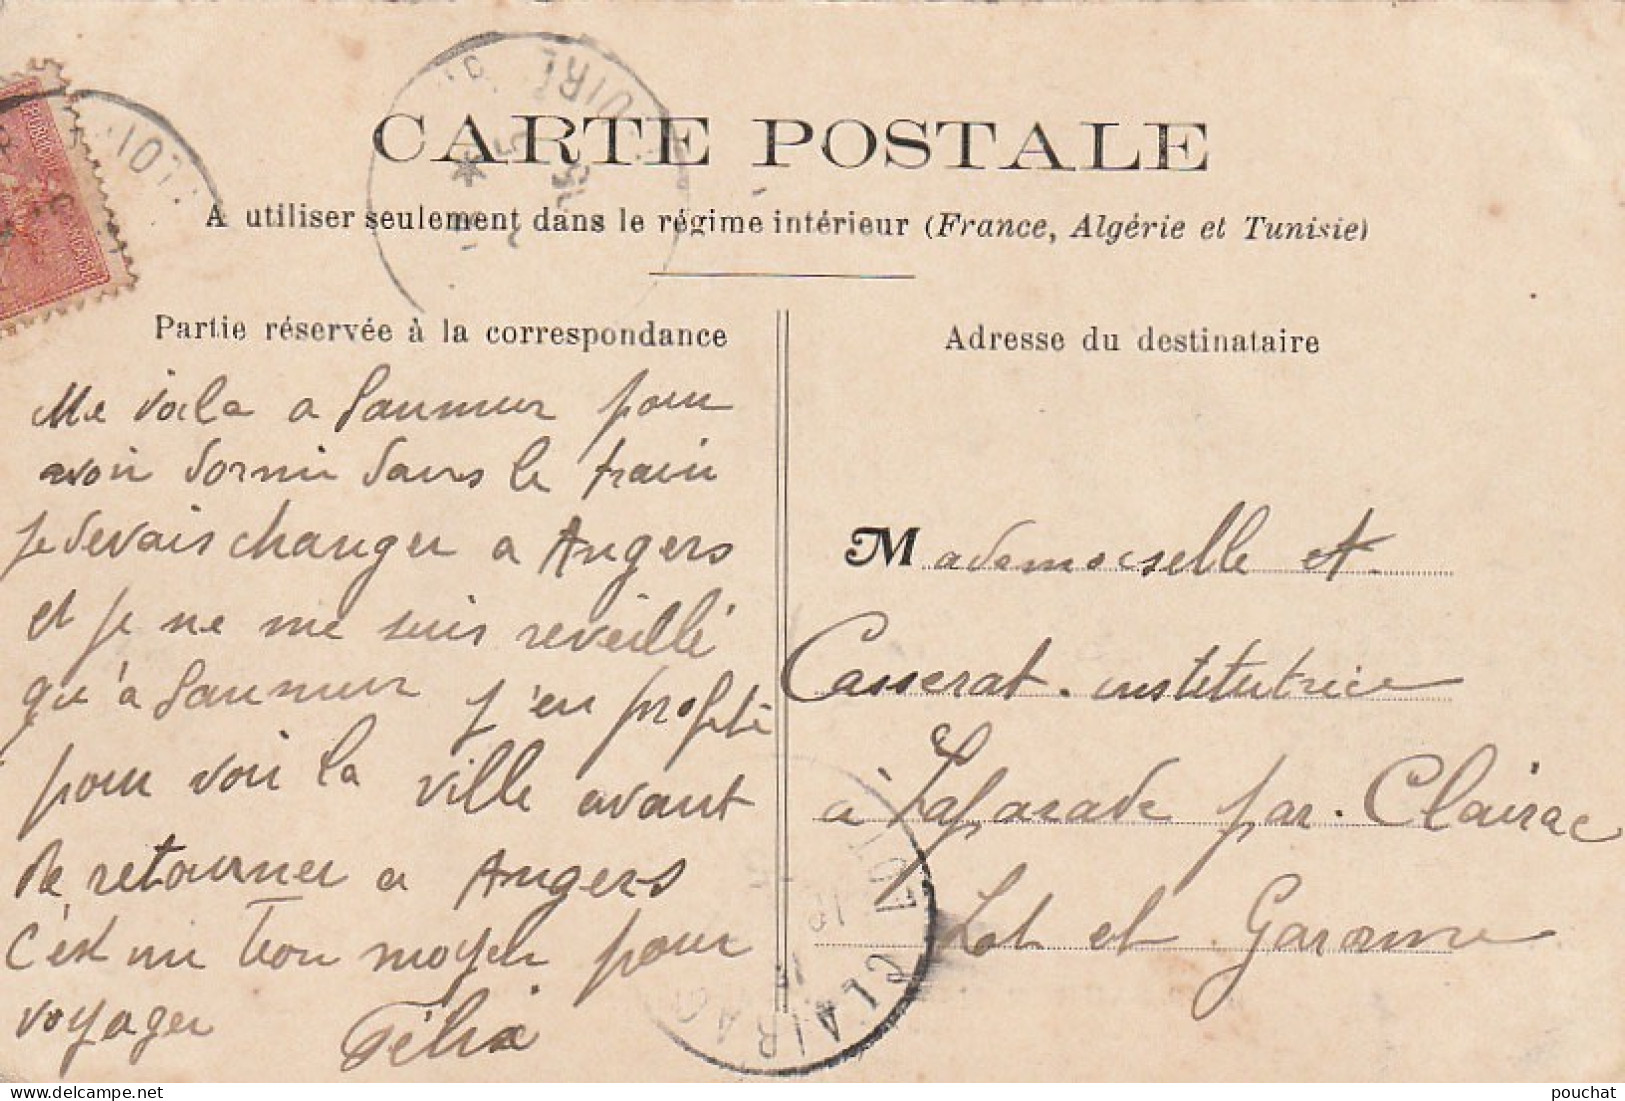 CARTE POSTALE
A utiliser seulement dans le régime intérieur (France, Algérie et Tunisie)
Partie réservée à la correspondance
Me voila a Saumur pour
avoir dormir dans le train
je devais changer a Angers
et je ne me suis reveillé
qu'a Saumur j'en profite
pour voir la ville avant
de retourner a Angers
C'est un bon moyen pour
voyager Félix
Adresse du destinataire
Mademoiselle et
Casserat. institutrice
à Lafarade par. Clairac
Lot et Garonne
CLAIRAC LOT
pouchat